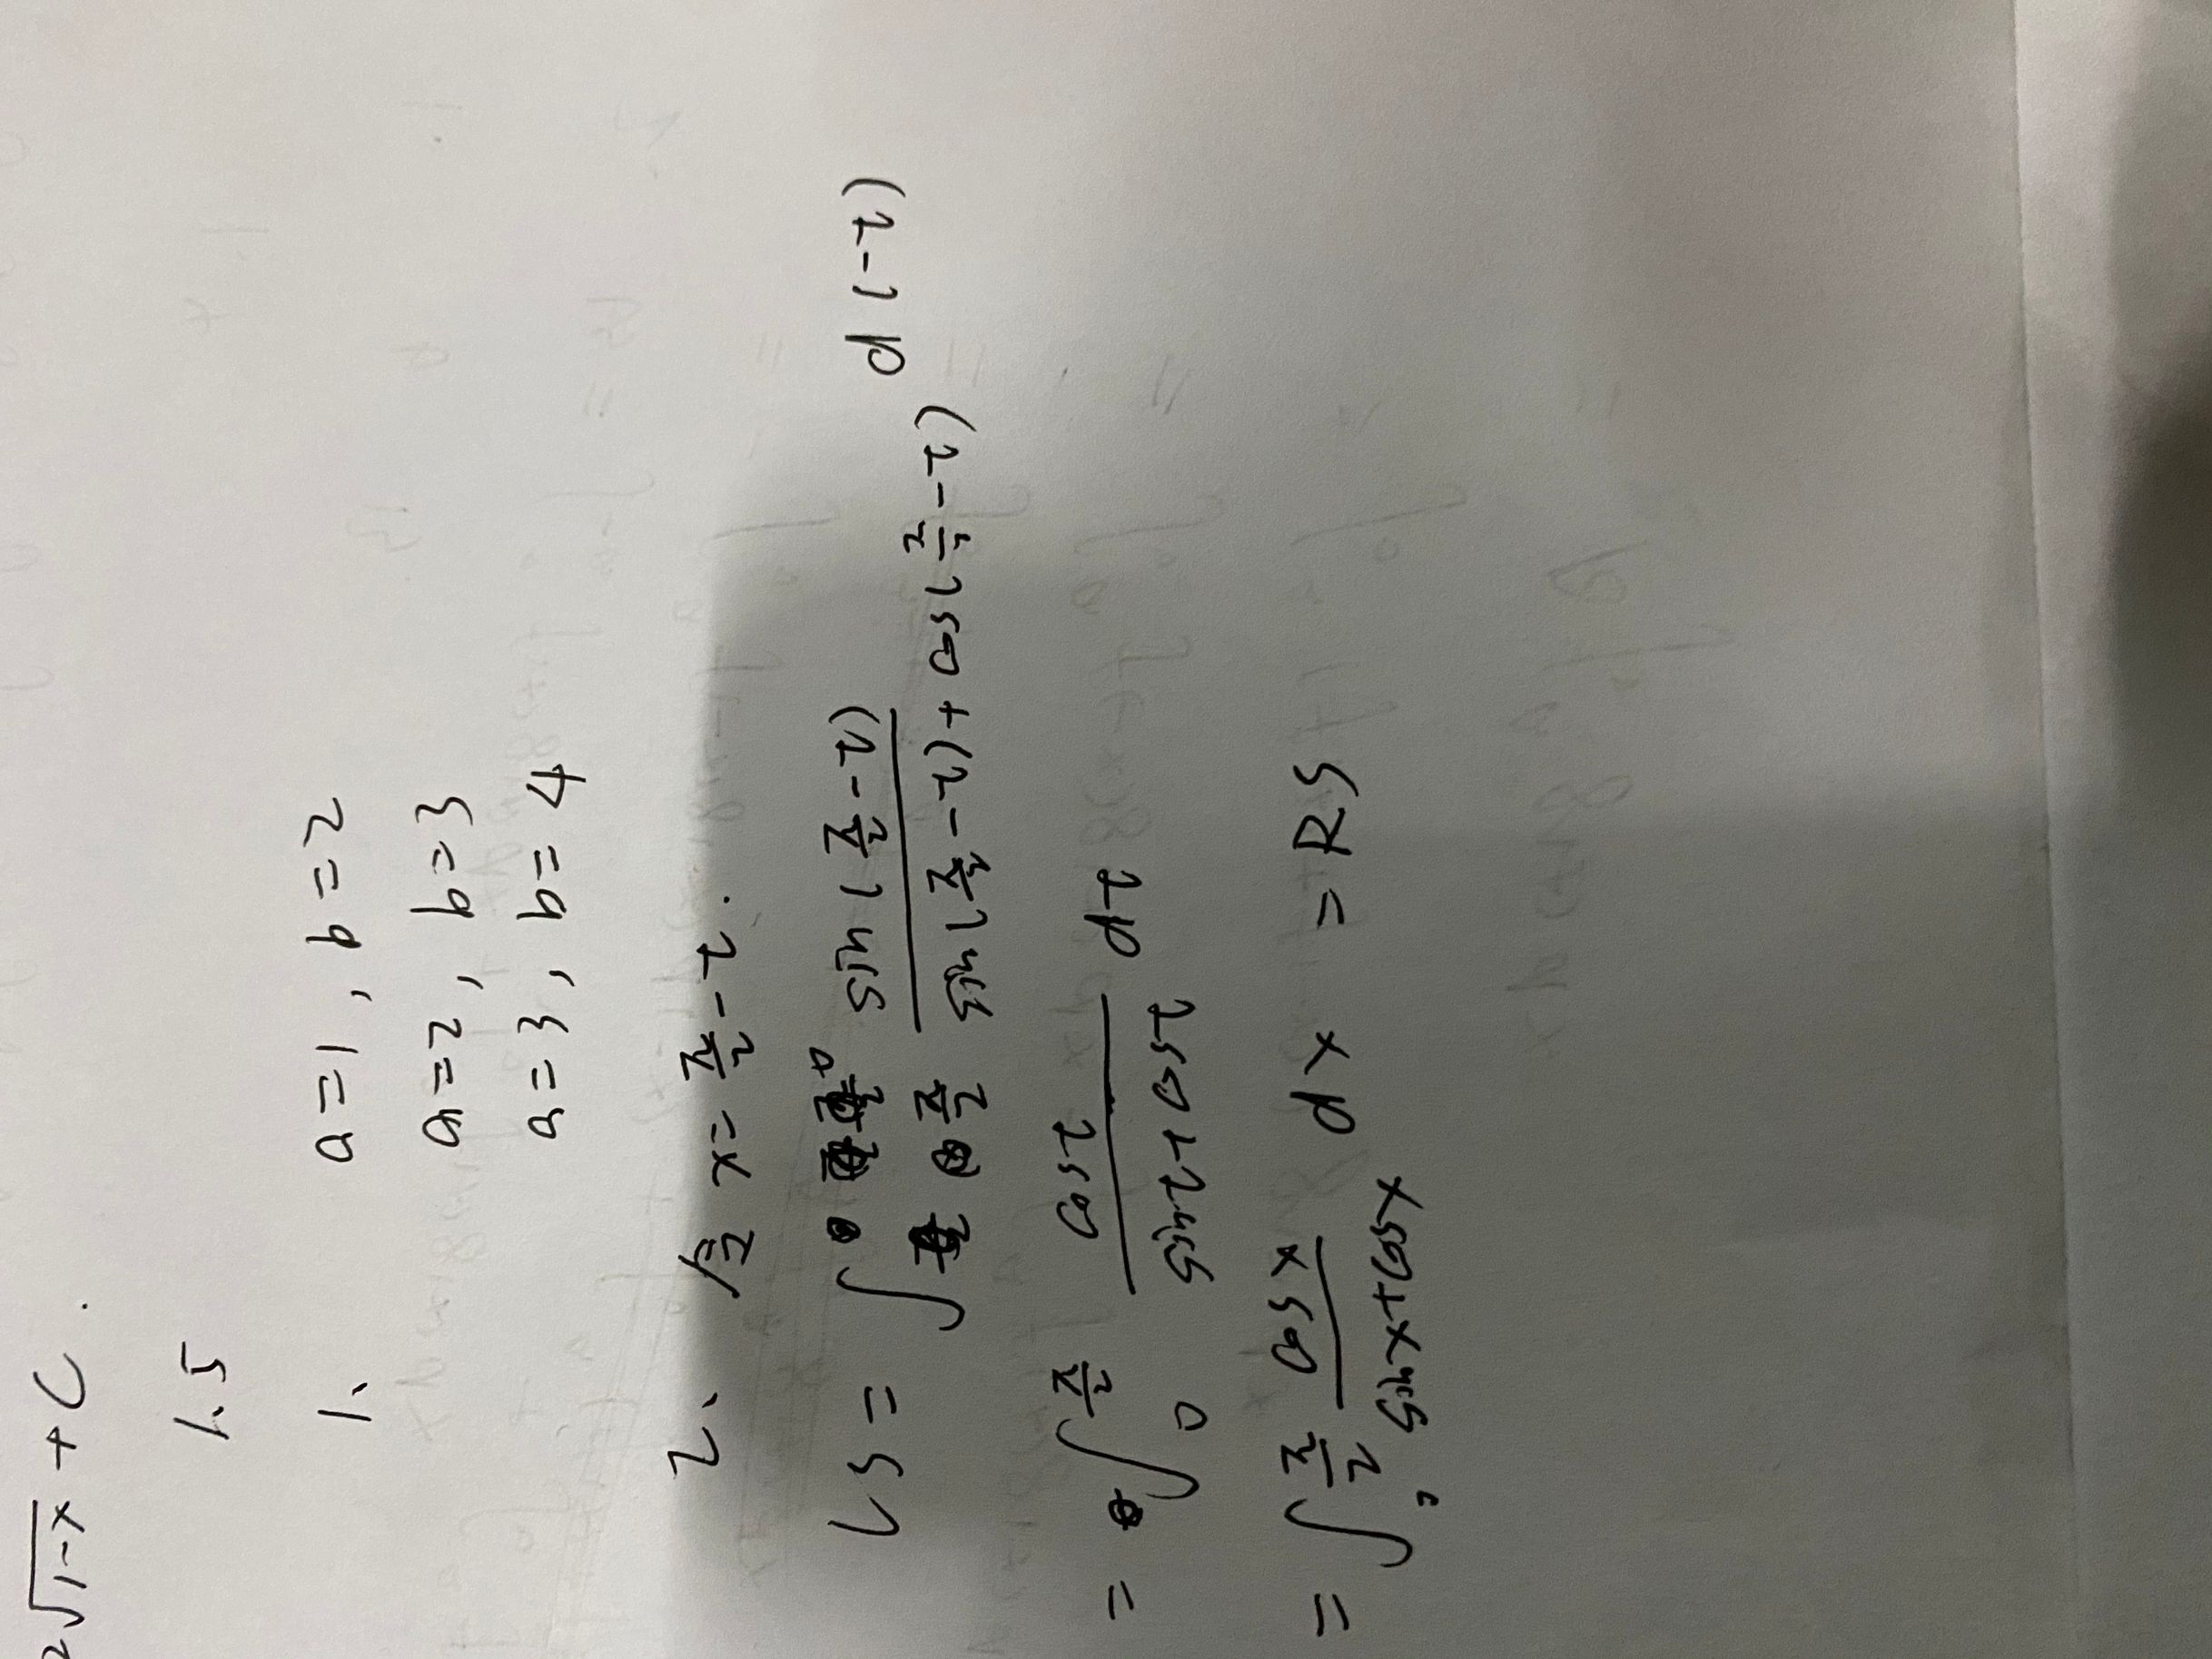 2√(1-x) + C.
1.5
1、 a=1, b=2
a=2, b=3
a=3, b=4
2、 令 x=π/2-t.
LS = ∫_{π/2}^{0} sin(π/2-t)/(sin(π/2-t)+cos(π/2-t)) d(-t)
= ∫_{0}^{π/2} cost/(sint+cost) dt
= ∫_{0}^{π/2} cosx/(sinx+cosx) dx = RS